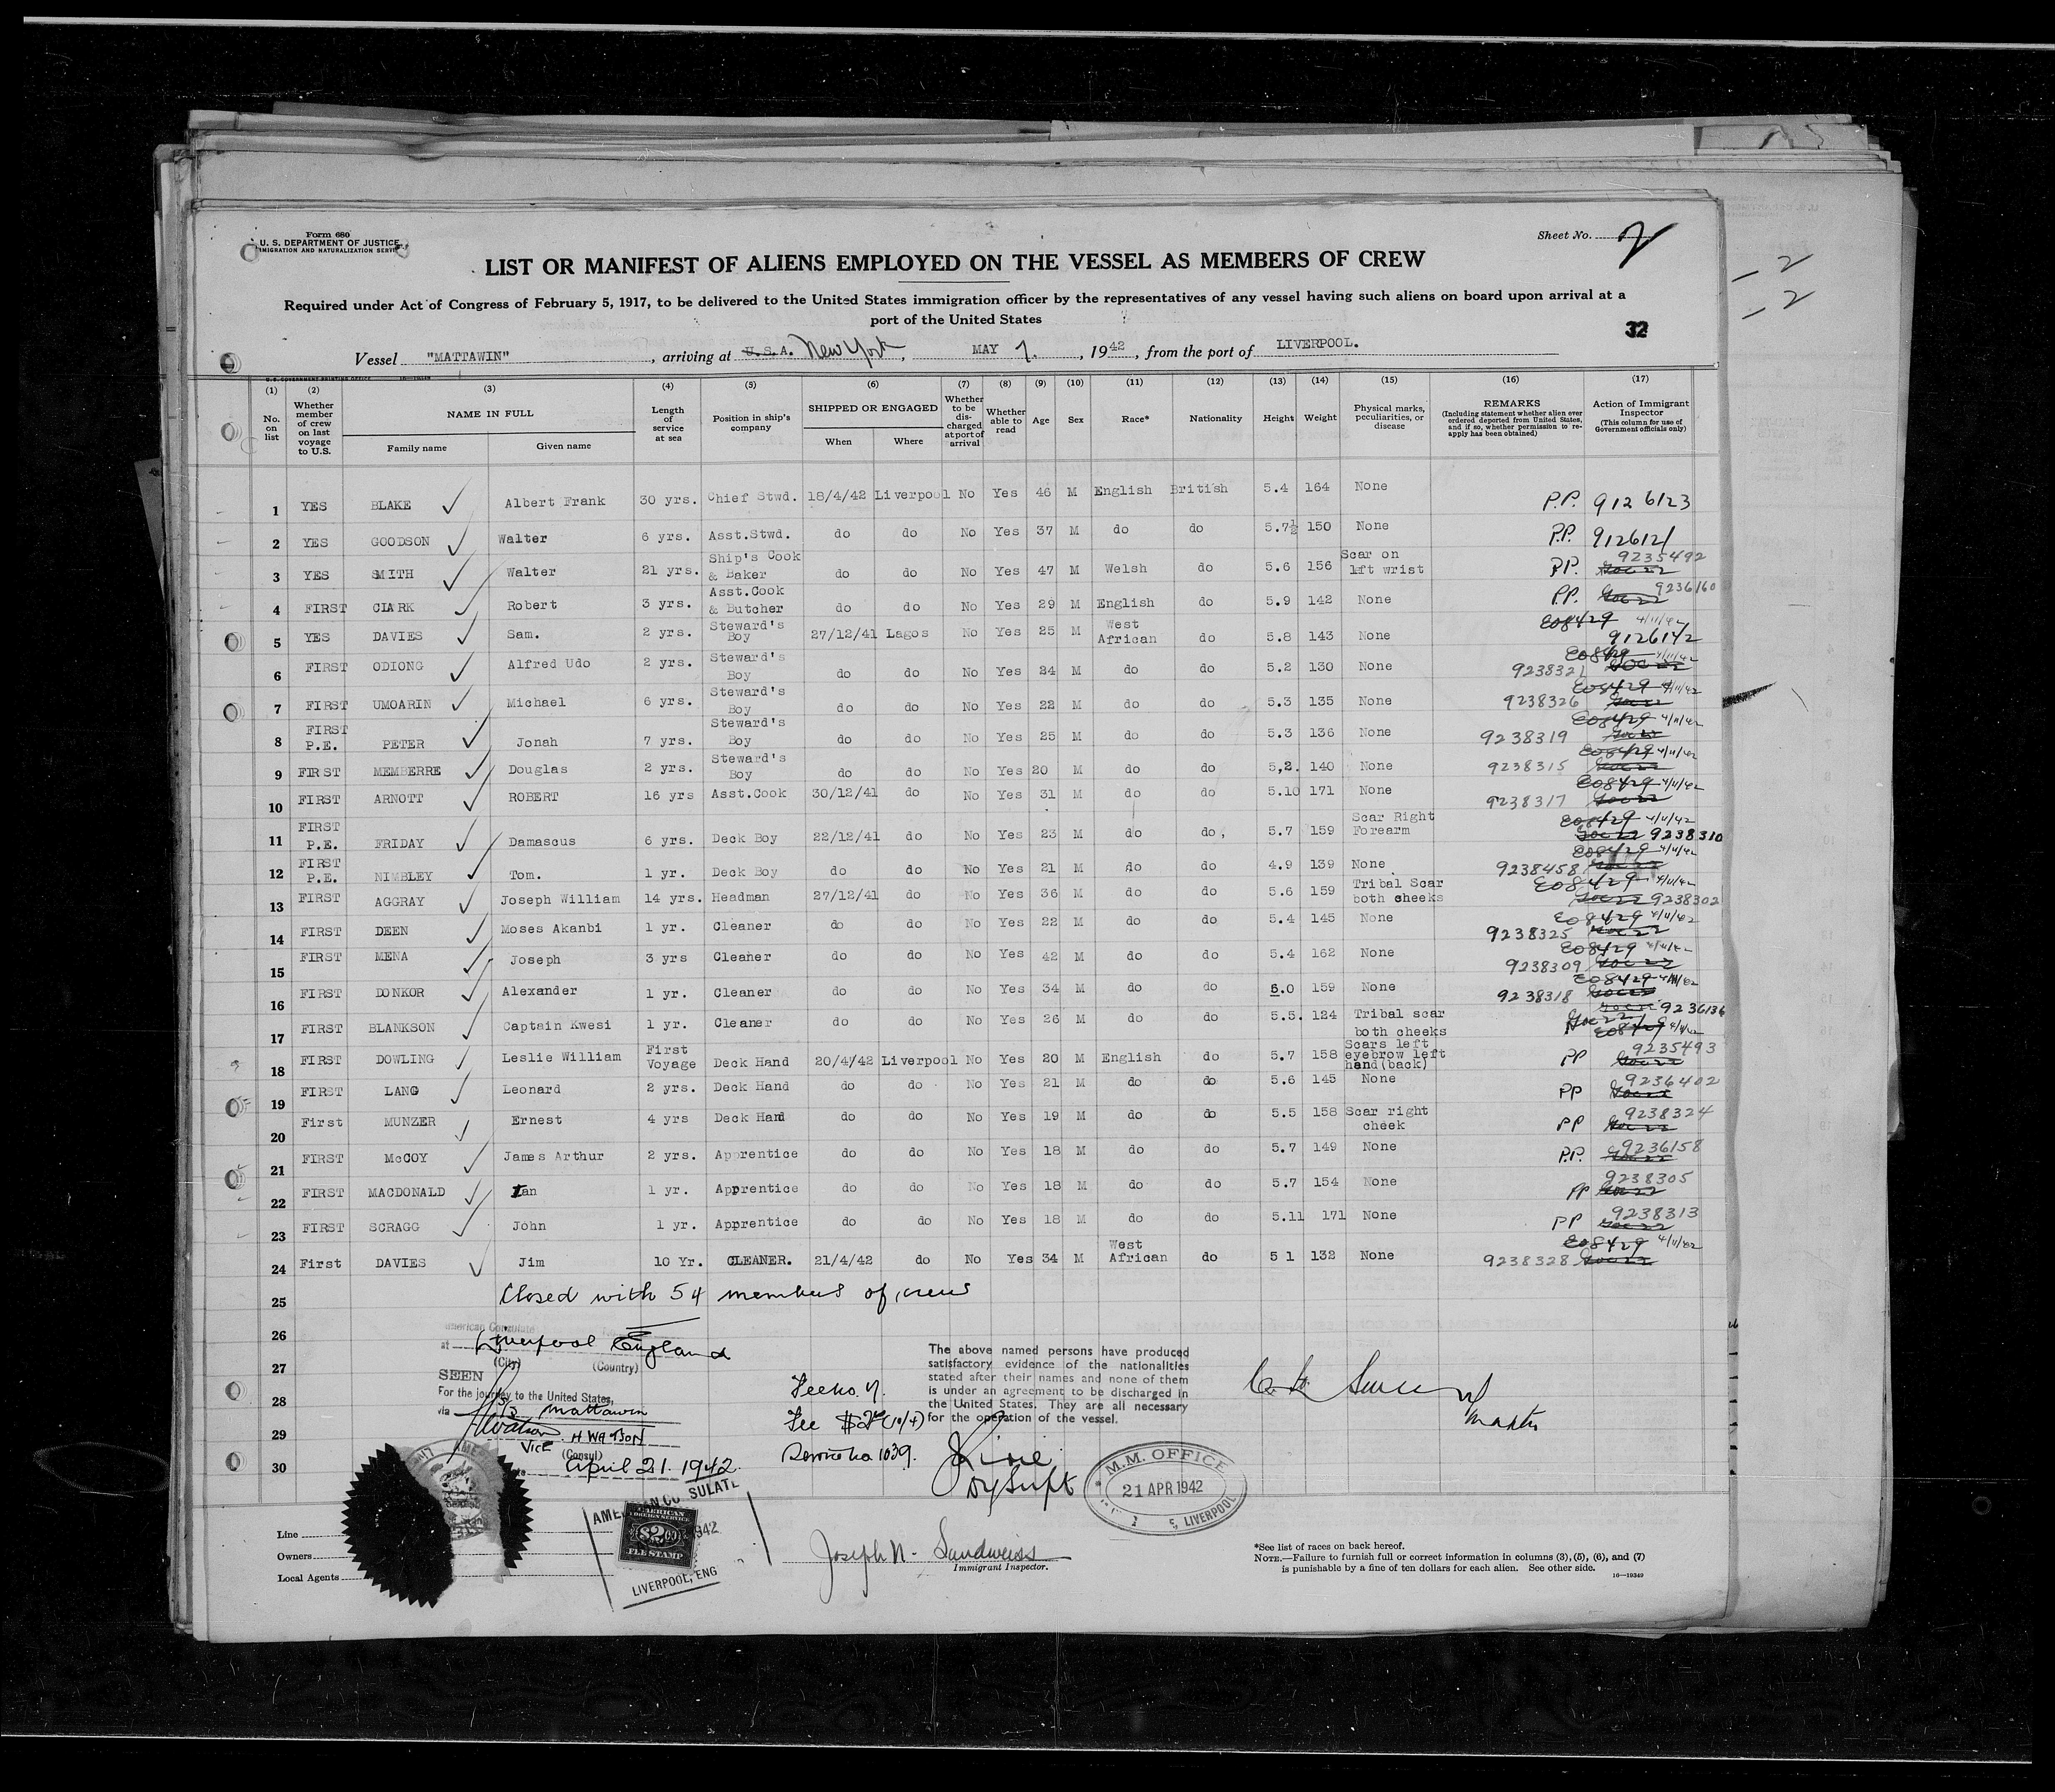 Form 680
U. S. DEPARTMENT OF JUSTICE
IMMIGRATION AND NATURALIZATION SERVICE
Sheet No. 2
LIST OR MANIFEST OF ALIENS EMPLOYED ON THE VESSEL AS MEMBERS OF CREW
Required under Act of Congress of February 5, 1917, to be delivered to the United States immigration officer by the representatives of any vessel having such aliens on board upon arrival at a
port of the United States
32
Vessel "MATTAWIN", arriving at U.S.A. New York, MAY 7, 1942, from the port of LIVERPOOL.
(1) (2) (3) (4) (5) (6) (7) (8) (9) (10) (11) (12) (13) (14) (15) (16) (17)
No. on list
Whether member of crew on last voyage to U.S.
NAME IN FULL
Family name
Given name
Length of service at sea
Position in ship's company
SHIPPED OR ENGAGED
When
Where
Whether to be discharged at port of arrival
Whether able to read
Age
Sex
Race*
Nationality
Height
Weight
Physical marks, peculiarities, or disease
REMARKS
(Including statement whether alien ever ordered deported from United States, and if so, whether permission to reapply has been obtained)
Action of Immigrant Inspector
(This column for use of Government officials only)
1 YES BLAKE Albert Frank 30 yrs. Chief Stwd. 18/4/42 Liverpool No Yes 46 M English British 5.4 164 None P.P. 9126123
2 YES GOODSON Walter 6 yrs. Asst.Stwd. do do No Yes 37 M do do 5.7½ 150 None P.P. 9126121
3 YES SMITH Walter 21 yrs. Ship's Cook & Baker do do No Yes 47 M Welsh do 5.6 156 Scar on left wrist P.P. 9235492
4 FIRST CLARK Robert 3 yrs. Asst.Cook & Butcher do do No Yes 29 M English do 5.9 142 None P.P. 9236160
5 YES DAVIES Sam. 2 yrs. Steward's Boy 27/12/41 Lagos No Yes 25 M West African do 5.8 143 None E08429 4/11/42 9126142
6 FIRST ODIONG Alfred Udo 2 yrs. Steward's Boy do do No Yes 24 M do do 5.2 130 None 9238321 E08429 4/11/42
7 FIRST UMOARIN Michael 6 yrs. Steward's Boy do do No Yes 22 M do do 5.3 135 None 9238326 E08429 4/11/42
8 FIRST P.E. PETER Jonah 7 yrs. Steward's Boy do do No Yes 25 M do do 5.3 136 None 9238319 E08429 4/11/42
9 FIRST MEMBERRE Douglas 2 yrs. Steward's Boy do do No Yes 20 M do do 5,2. 140 None 9238315 E08429 4/11/42
10 FIRST ARNOTT ROBERT 16 yrs Asst.Cook 30/12/41 do No Yes 31 M do do 5.10 171 None 9238317 E08429 4/11/42
11 FIRST P.E. FRIDAY Damascus 6 yrs. Deck Boy 22/12/41 do No Yes 23 M do do, 5.7 159 Scar Right Forearm E08429 4/11/42 9238310
12 FIRST P.E. NIMBLEY Tom. 1 yr. Deck Boy do do No Yes 21 M do do 4.9 139 None 9238458 E08429 4/11/42
13 FIRST AGGRAY Joseph William 14 yrs. Headman 27/12/41 do No Yes 36 M do do 5.6 159 Tribal Scar both cheeks E08429 4/11/42 9238302
14 FIRST DEEN Moses Akanbi 1 yr. Cleaner do do No Yes 22 M do do 5.4 145 None 9238325 E08429 4/11/42
15 FIRST MENA Joseph 3 yrs Cleaner do do No Yes 42 M do do 5.4 162 None 9238309 E08429 4/11/42
16 FIRST DONKOR Alexander 1 yr. Cleaner do do No Yes 34 M do do 6.0 159 None 9238318 E08429 4/11/42
17 FIRST BLANKSON Captain Kwesi 1 yr. Cleaner do do No Yes 26 M do do 5.5. 124 Tribal scar both cheeks 9236136 E08429 4/11/42
18 FIRST DOWLING Leslie William First Voyage Deck Hand 20/4/42 Liverpool No Yes 20 M English do 5.7 158 Scars left eyebrow left hand(back) PP 9235493
19 FIRST LANG Leonard 2 yrs. Deck Hand do do No Yes 21 M do do 5.6 145 None PP 9236402
20 First MUNZER Ernest 4 yrs Deck Hand do do No Yes 19 M do do 5.5 158 Scar right cheek PP 9238324
21 FIRST McCOY James Arthur 2 yrs. Apprentice do do No Yes 18 M do do 5.7 149 None P.P. 9236158
22 FIRST MACDONALD Ian 1 yr. Apprentice do do No Yes 18 M do do 5.7 154 None PP 9238305
23 FIRST SCRAGG John 1 yr. Apprentice do do No Yes 18 M do do 5.11 171 None PP 9238313
24 First DAVIES Jim 10 Yr. CLEANER. 21/4/42 do No Yes 34 M West African do 5 1 132 None 9238328 E08429 4/11/42
25 Closed with 54 members of crew
26
27
28
29
30
American Consulate
at Liverpool England
(City) (Country)
SEEN
For the journey to the United States,
via S/S Mattawin
H WATSON
VICE (Consul)
April 21. 1942.
Fee No. 4.
Fee $2.00 (10/4)
Service No 1039.
The above named persons have produced
satisfactory evidence of the nationalities
stated after their names and none of them
is under an agreement to be discharged in
the United States. They are all necessary
for the operation of the vessel.
Master
Dy Supt
M.M. OFFICE
21 APR 1942
LIVERPOOL
AMERICAN CONSULATE
AMERICAN
FOREIGN SERVICE
$2.00
FEE STAMP
1942
LIVERPOOL, ENG
Line
Owners
Local Agents
Joseph N. Sandweiss
Immigrant Inspector.
*See list of races on back hereof.
NOTE.—Failure to furnish full or correct information in columns (3), (5), (6), and (7)
is punishable by a fine of ten dollars for each alien. See other side.
16—19349
— 2
— 2